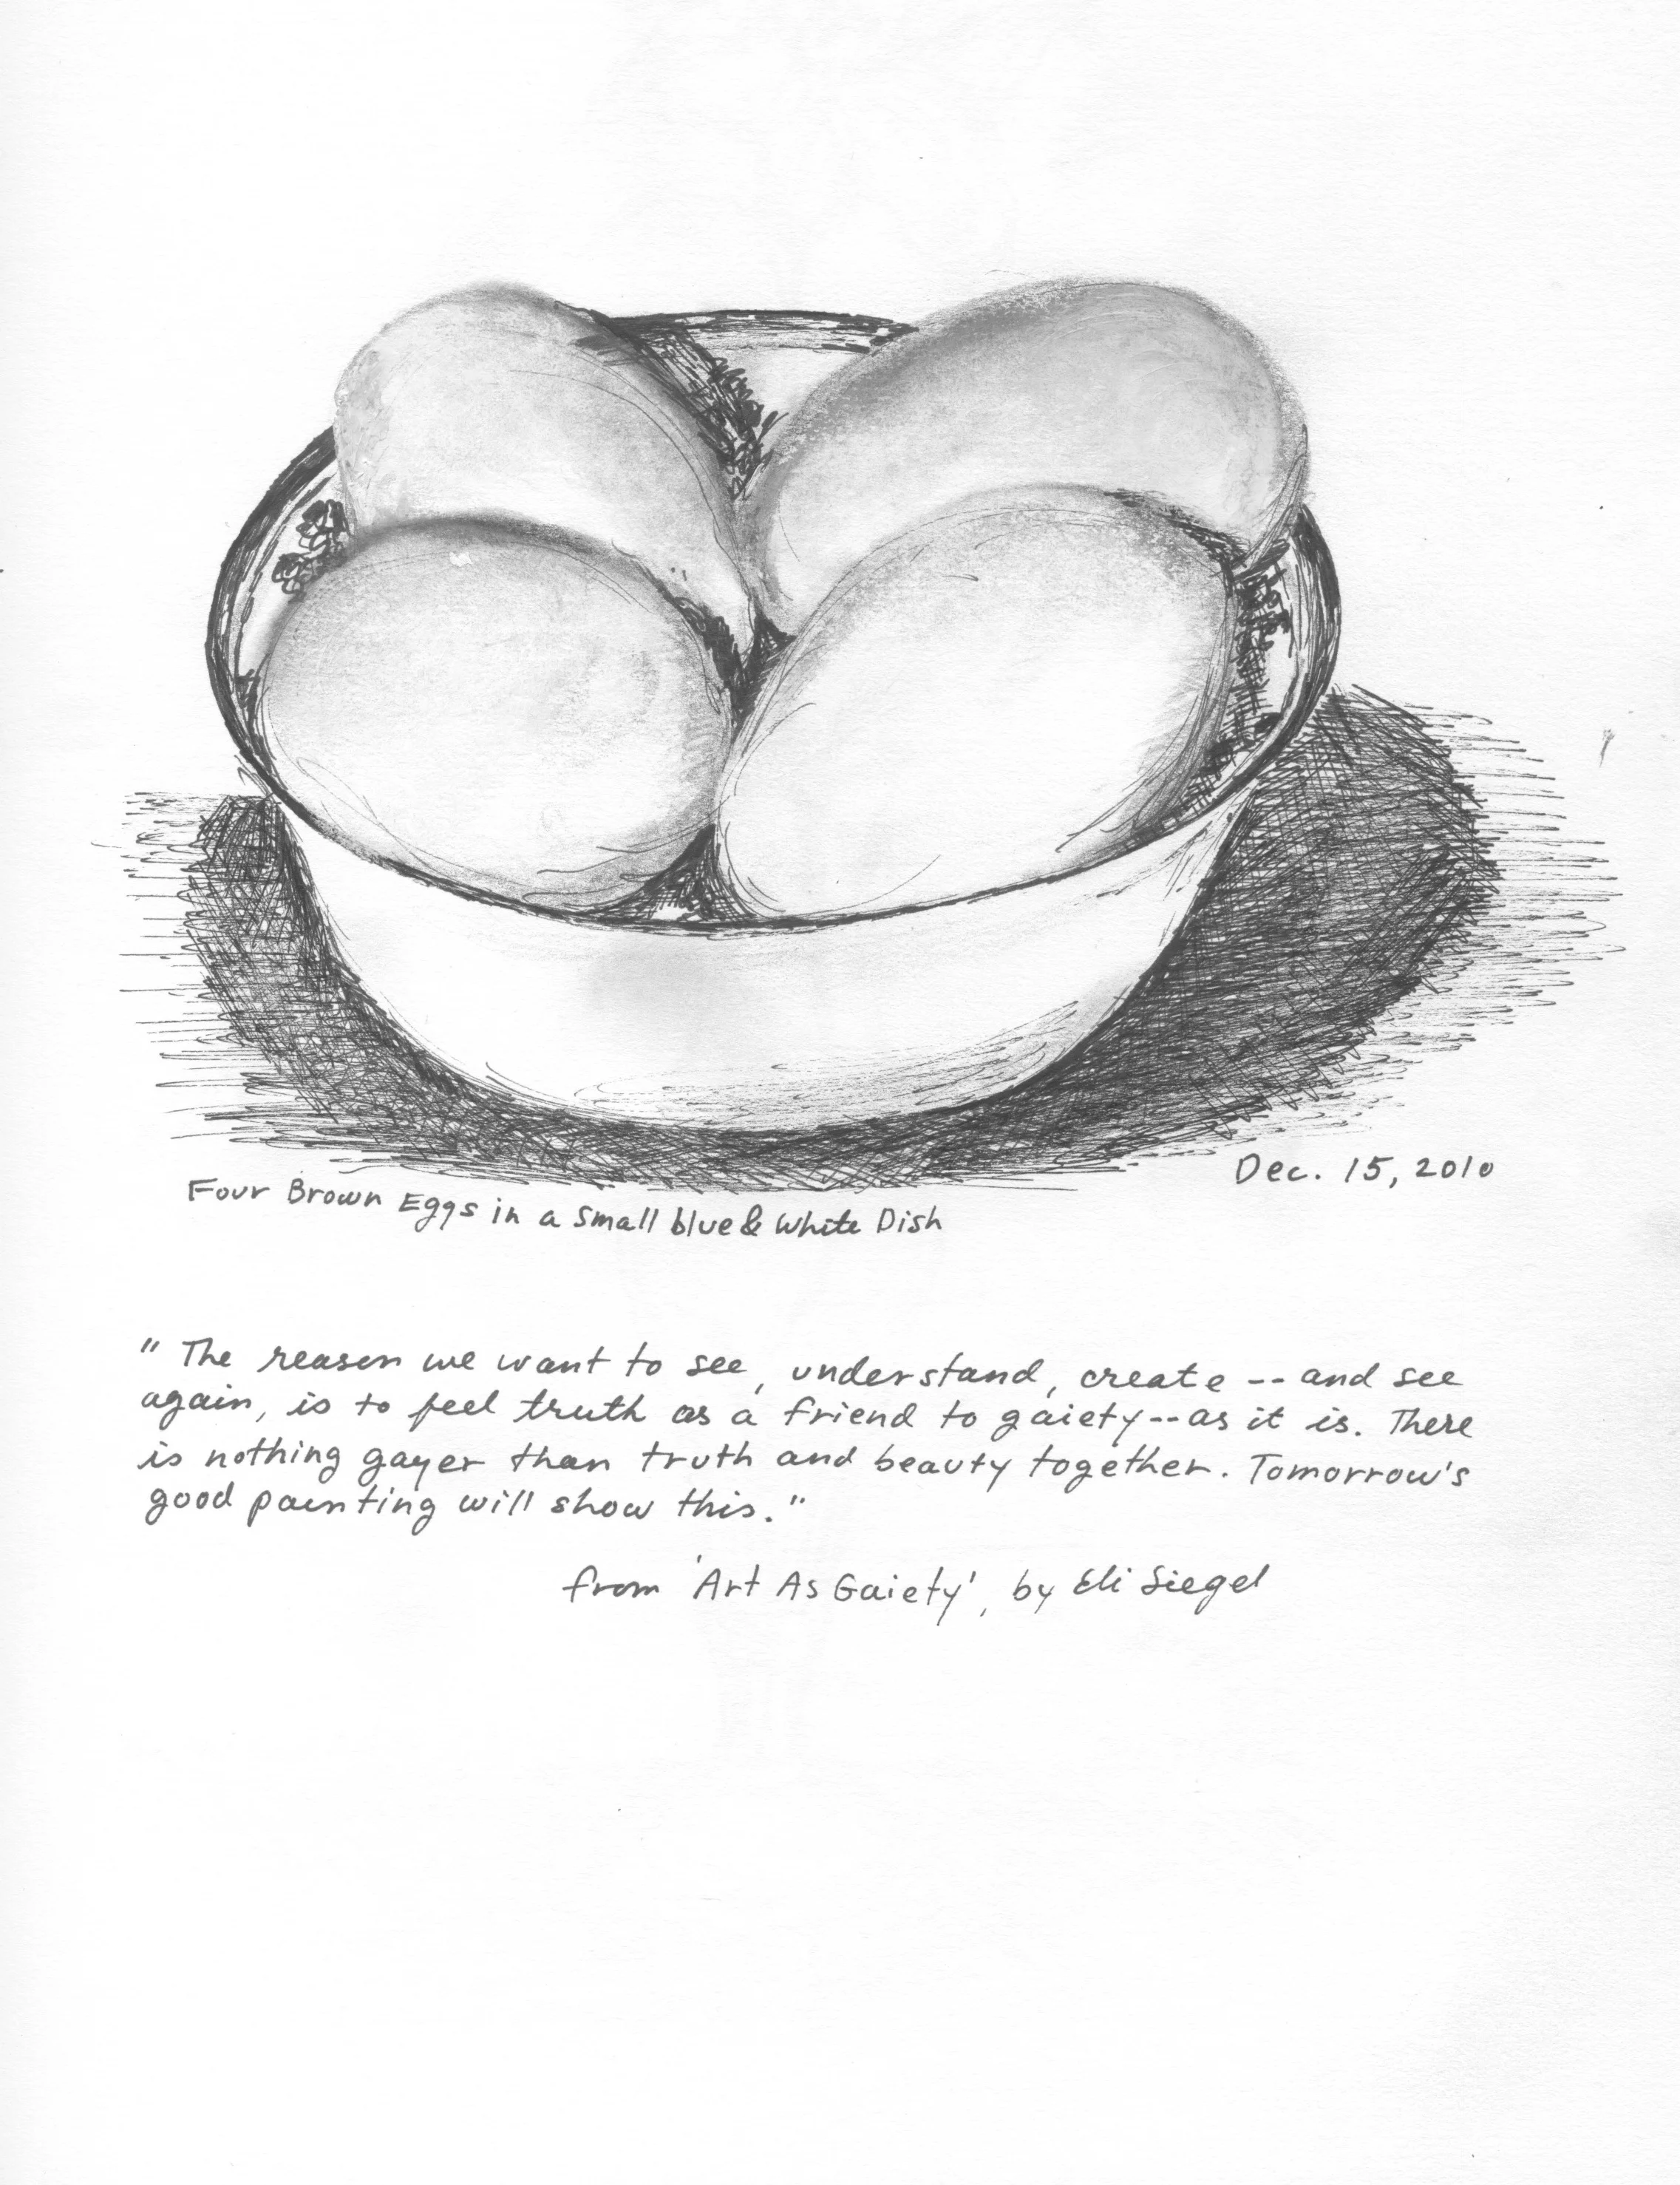 Four Brown Eggs in a Small blue & White Dish
Dec. 15, 2010
"The reason we want to see, understand, create -- and see
again, is to feel truth as a friend to gaiety -- as it is. There
is nothing gayer than truth and beauty together. Tomorrow's
good painting will show this."
from 'Art As Gaiety', by Eli Siegel